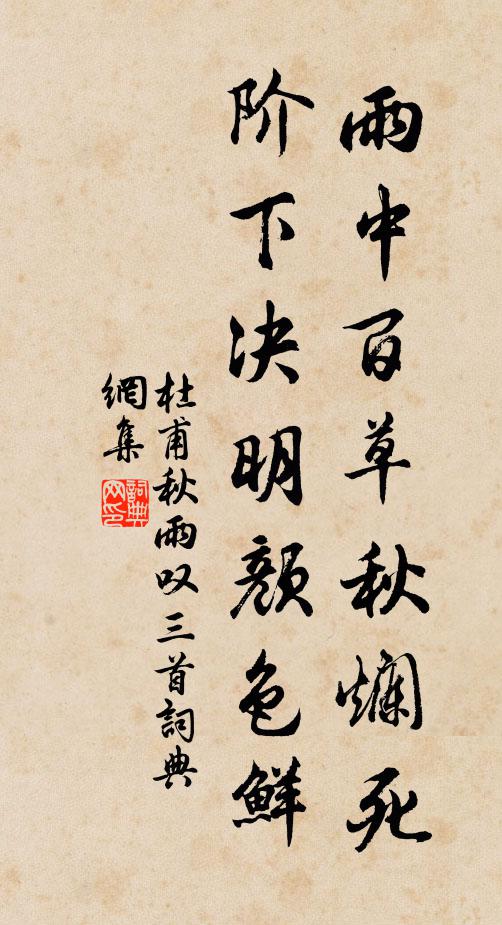 雨中百草秋爛死
阶下决明颜色鮮
杜甫秋雨叹三首詞典
網集
詞典
网印